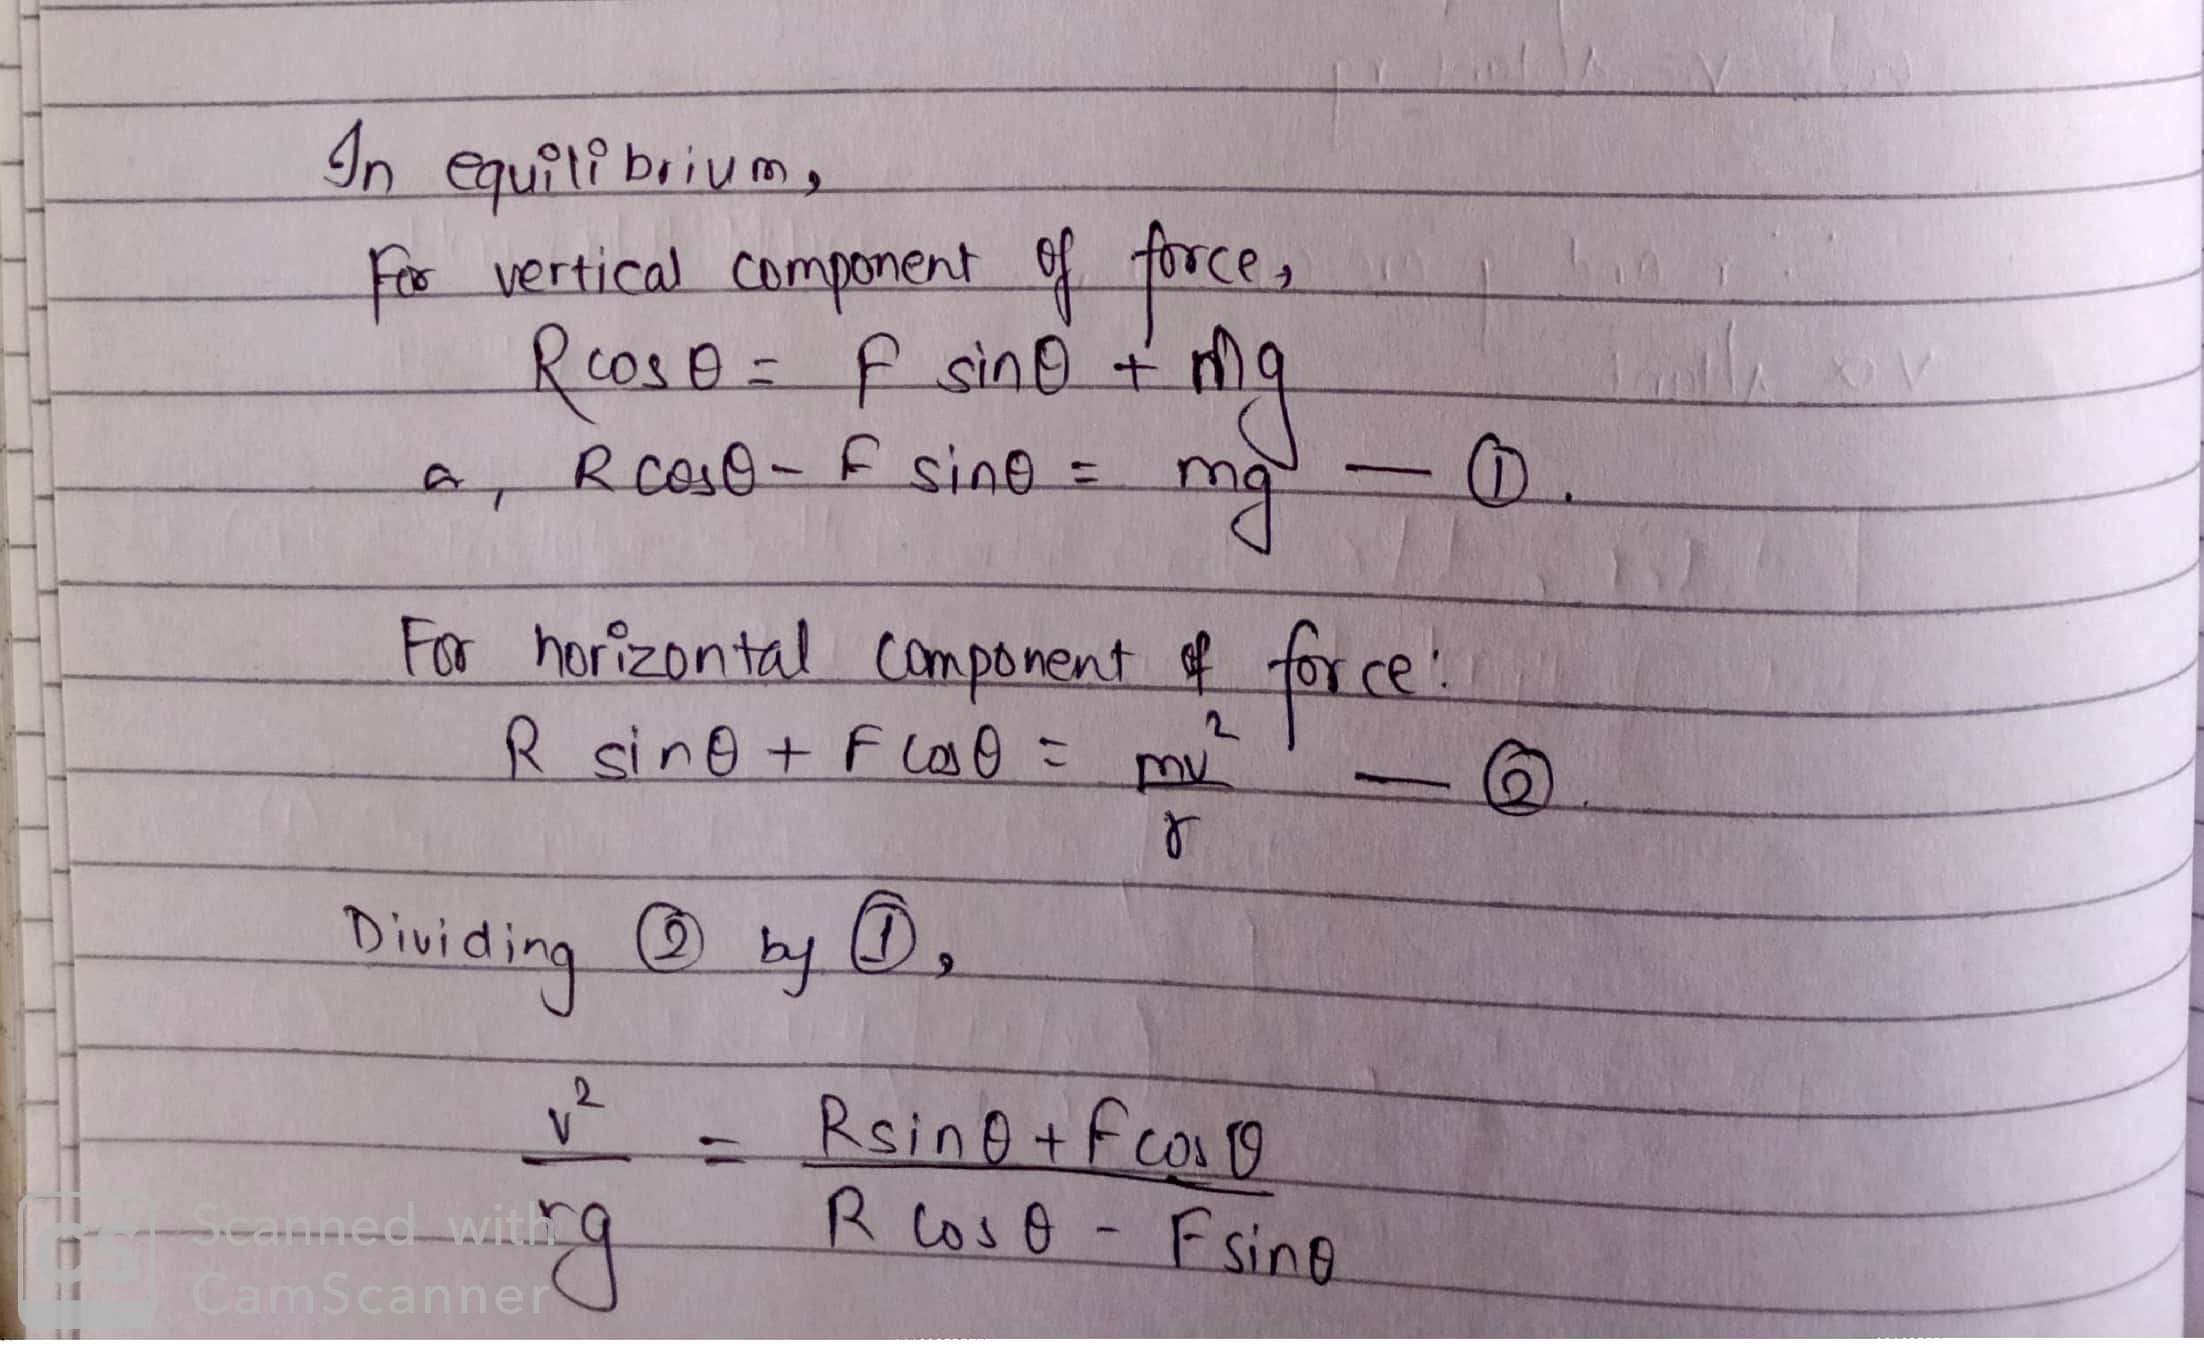 In equilibrium,
For vertical component of force,
R cos θ = F sin θ + mg
a, R cos θ - F sin θ = mg — ①.
For horizontal component of force:
R sin θ + F cos θ = mv²/r — ②.
Dividing ② by ①,
v²/rg = R sin θ + F cos θ / R cos θ - F sin θ
CS Scanned with
CamScanner